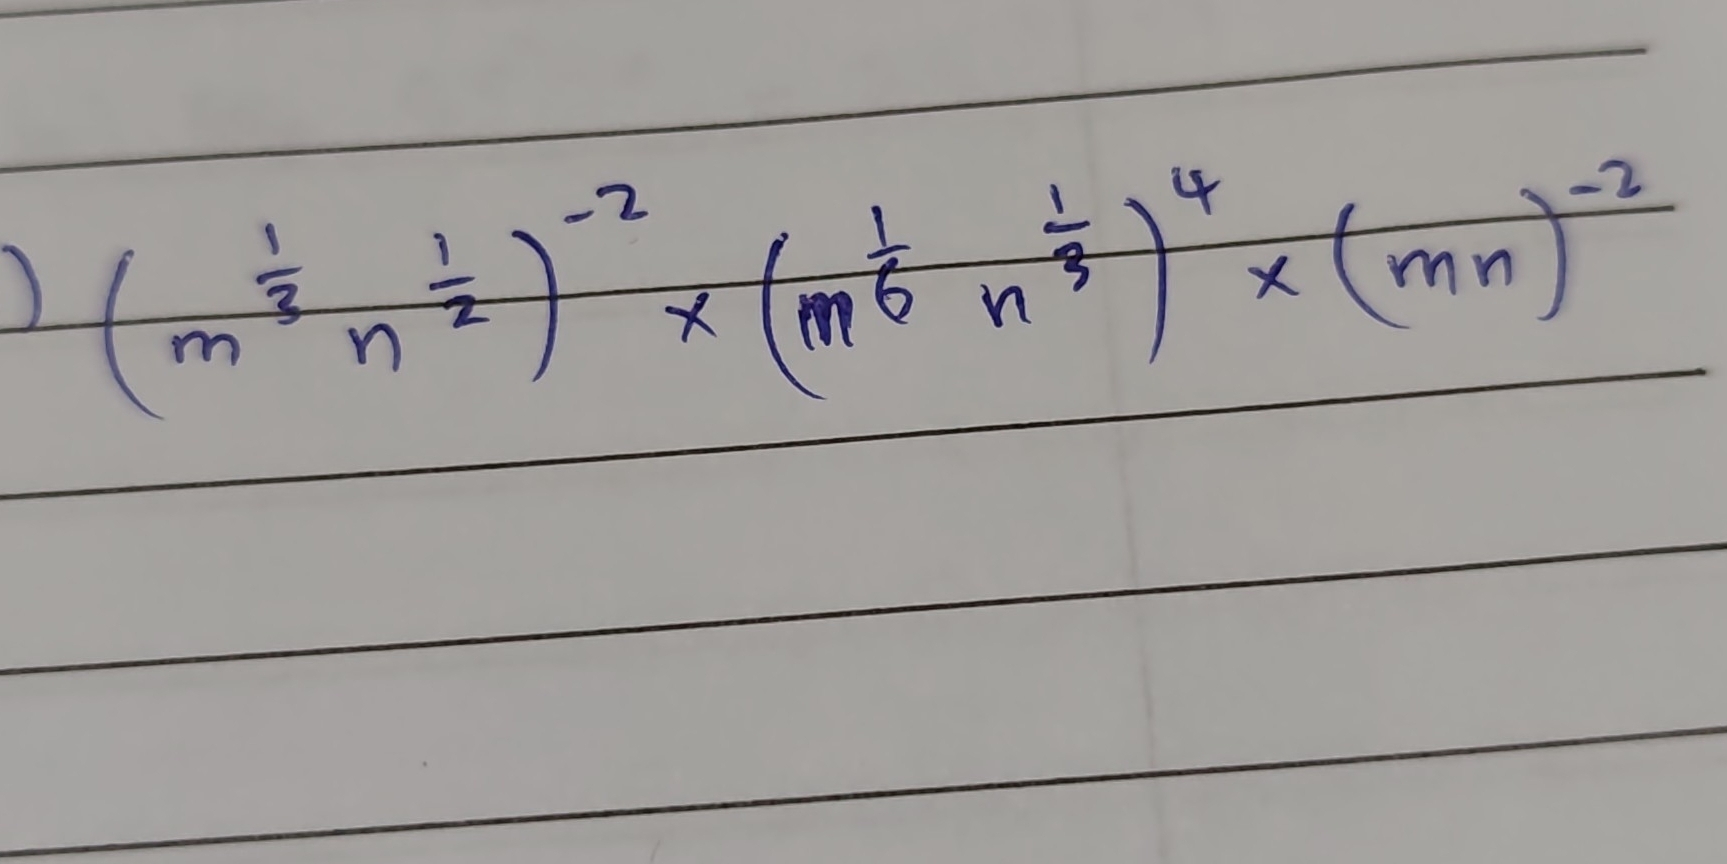 ) (m^{\frac{1}{3}} n^{\frac{1}{2}})^{-2} × (m^{\frac{1}{6}} n^{\frac{1}{3}})^{4} × (mn)^{-2}